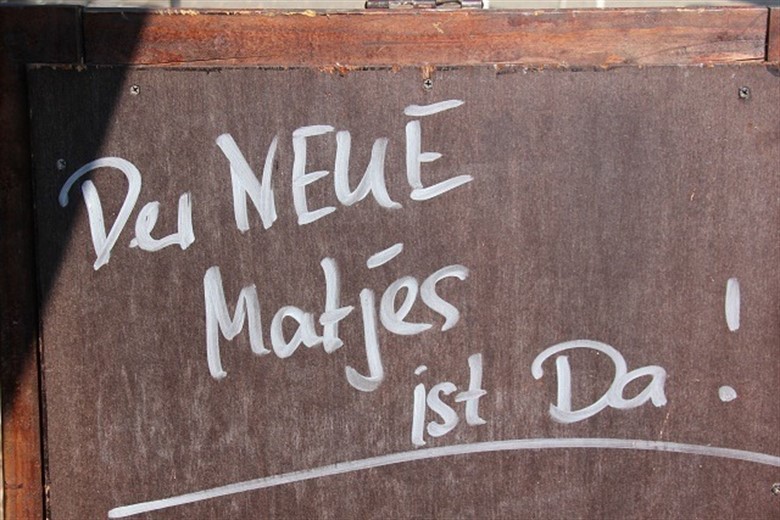 Der NEUE
Matjes
ist Da!